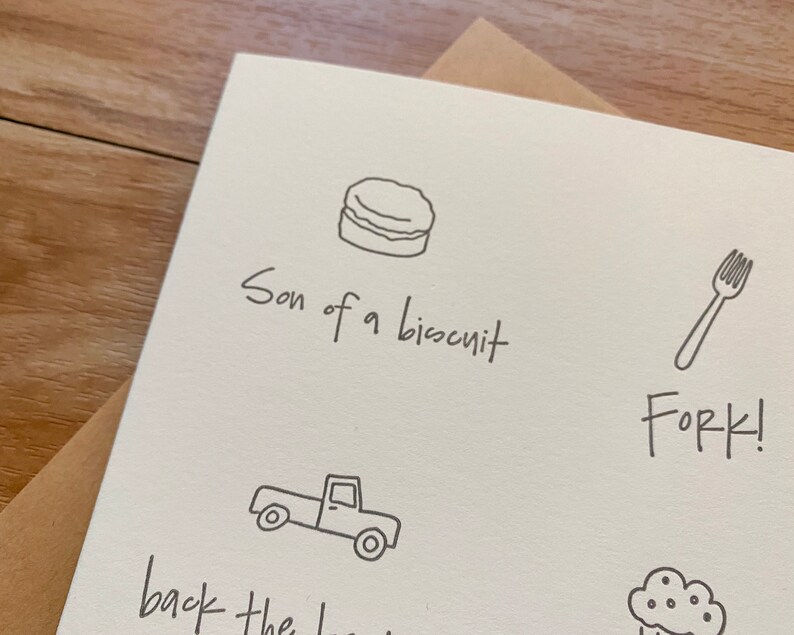 Son of a biscuit
FORK!
back the